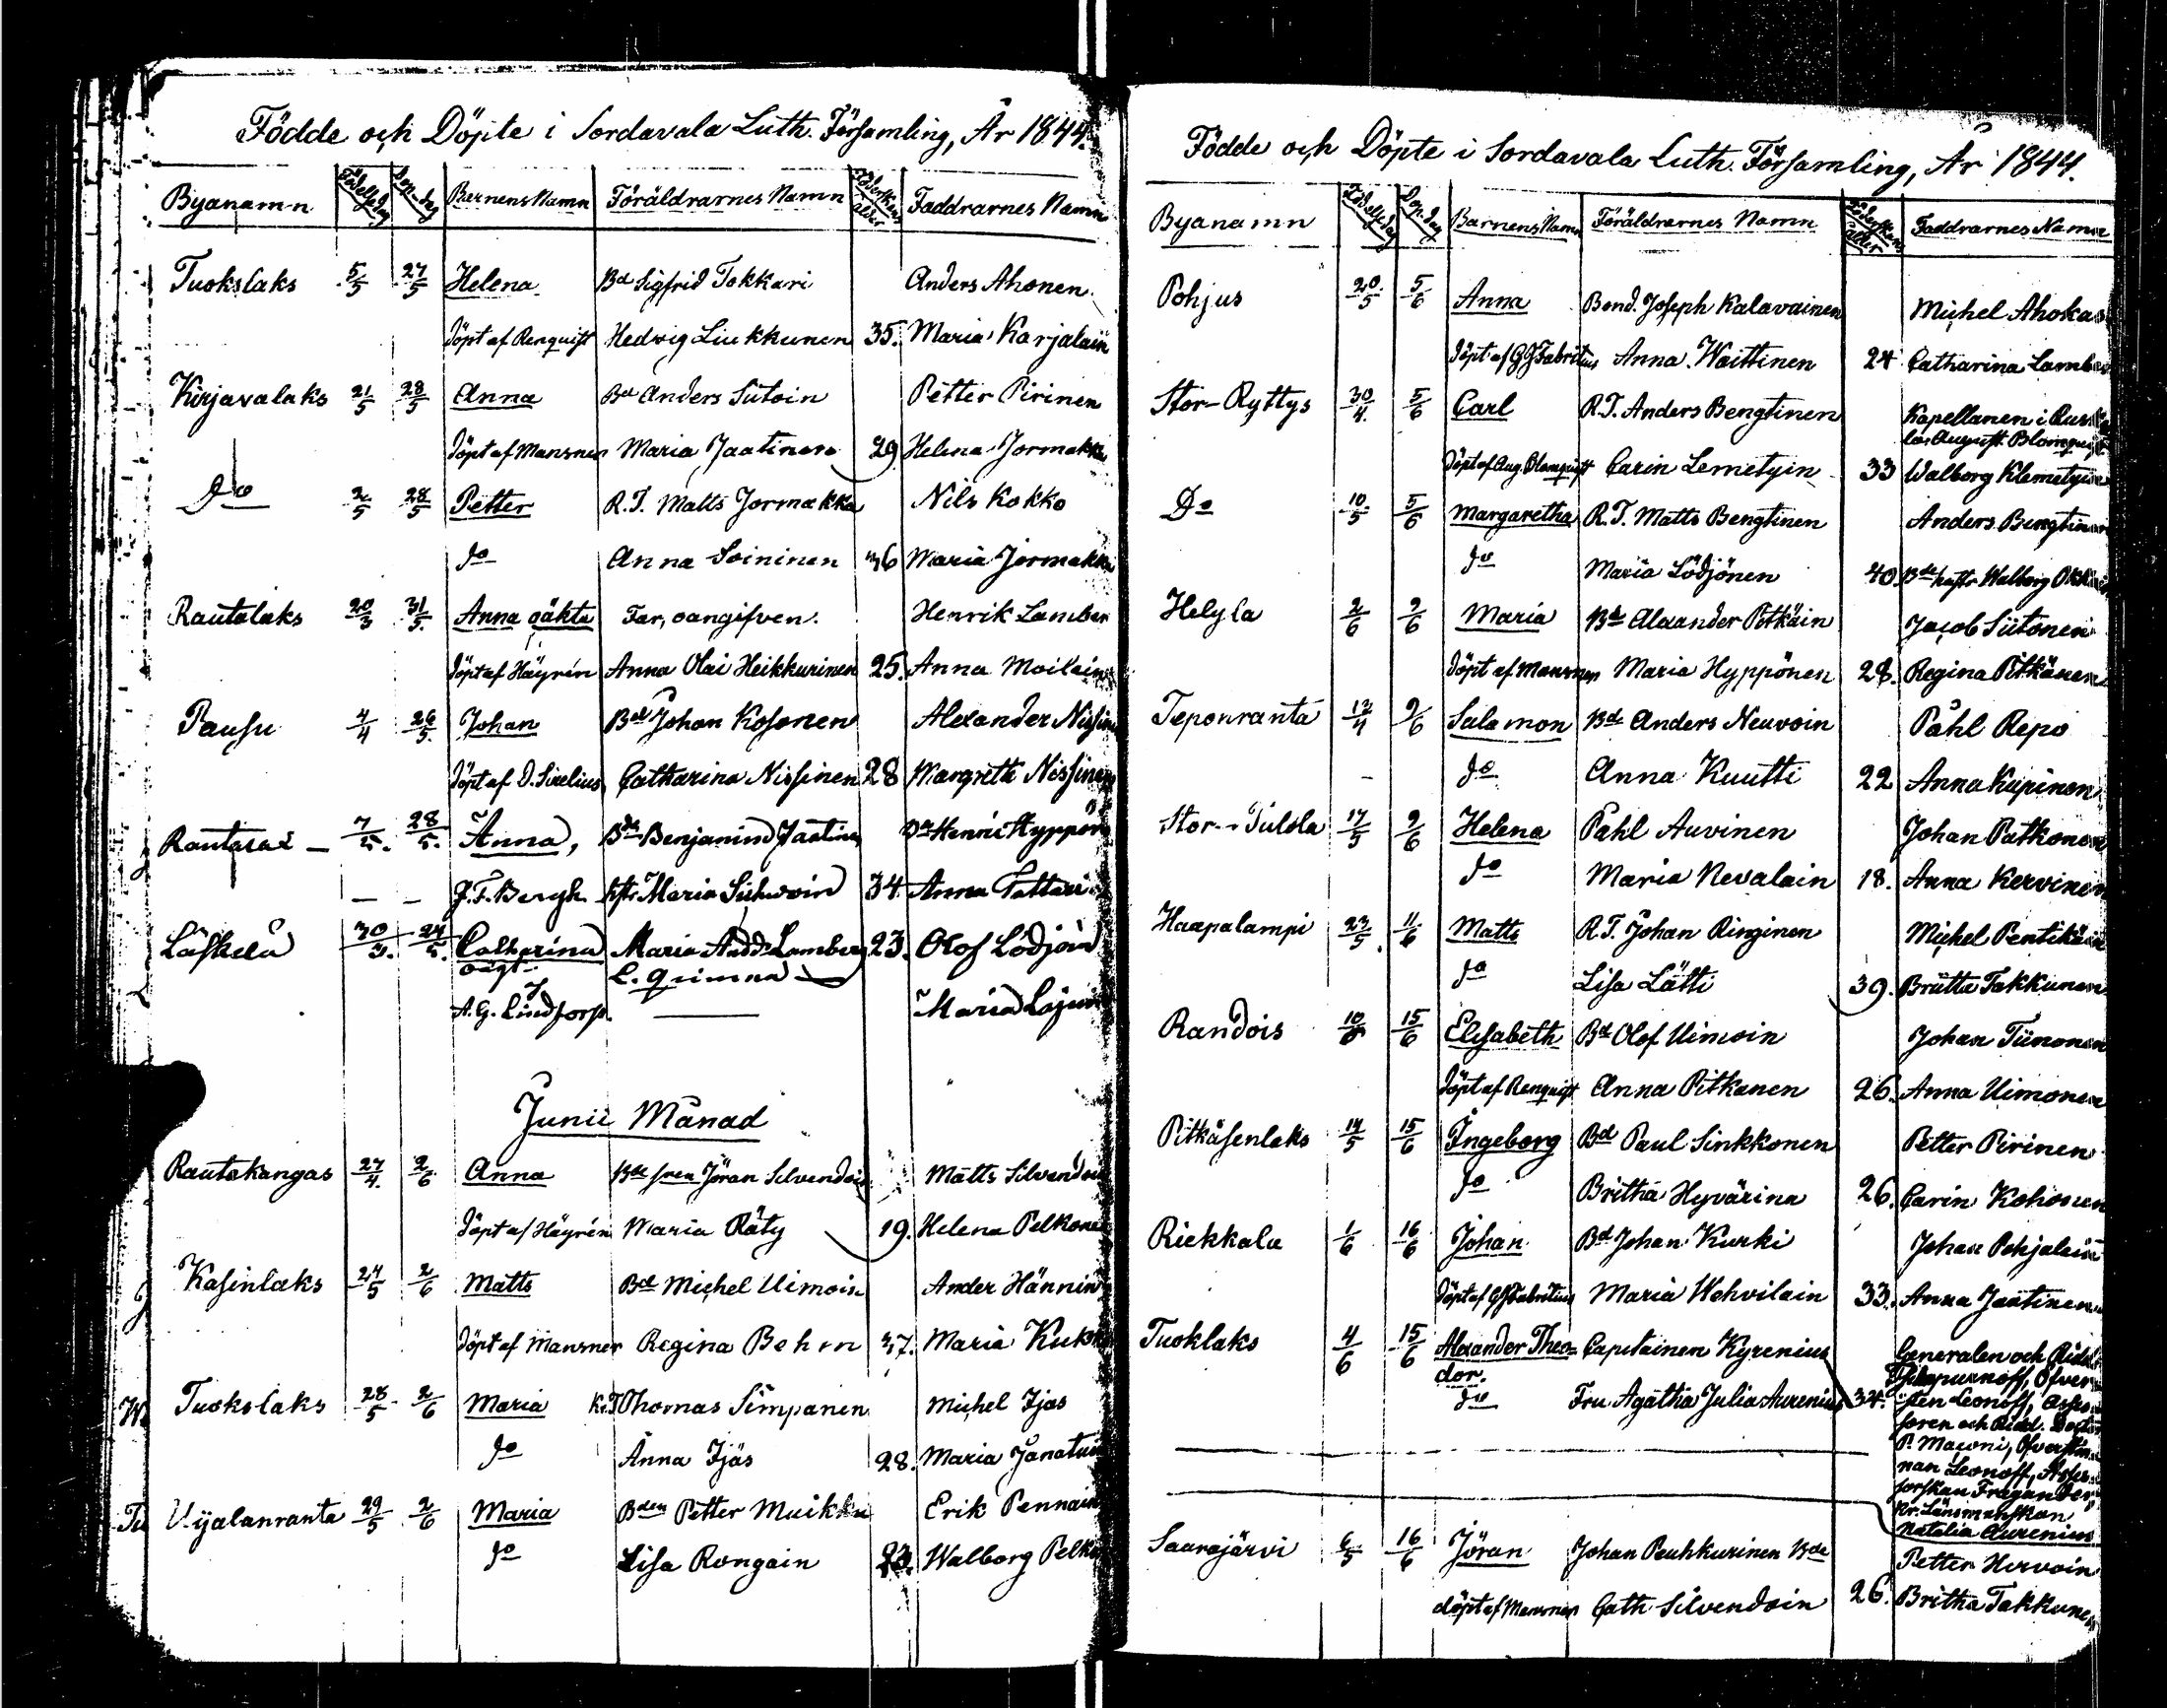 Födde och Döpte i Sordavala Luth. Församling, År 1844.
Byanamn Födelsedag Dop-dag Barnens Namn Föräldrarnes Namn Moderskans ålder Faddrarnes Namn
Tuokslaks 5/5 27/5 Helena Bd Sigfrid Tokkari Anders Ahonen
Döpt af Renquist Hedwig Liukkunen 35. Maria Karjalain
Kirjavalaks 21/5 28/5 Anna Bd Anders Sutoin Petter Pirinen
Döpt af Mansner Maria Jaatinen 29 Helena Jormakka
Do 2/5 28/5 Petter R.T. Matts Jormakka Nils Kokko
do Anna Soininen 36 Maria Jormakka
Rautalaks 20/3 31/5. Anna oäkta Far, oangifven. Henrik Lamber
Döpt af Häyrén Anna Olai Heikkurinen 25. Anna Moilain
Pausu 4/4 26/5. Johan Bd Johan Kosonen Alexander Nissin
Döpt af D. Sirelius Catharina Nissinen 28 Margreth Nissinen
7/5. 28/5. Anna, Bde Benjamin Jaatin Henric Hyppön
J. F. Bergh hstr Maria 34. Anna Tattari
Läskelä 30/3. 24/5. Catharina Maria Andd. Lamberg 23. Olof Lödjöin
oägt L. qvinna
A. G. Lindfors. Maria
Junii Månad
Rautakangas 27/4. 2/6 Anna Bde sven Jöran Silvendoin Matts Silvendoin
Döpt af Häyrén Maria Räty 19. Helena Pelkone
Kasinlaks 24/5 2/6 Matts Bd Michel Uimoin Ander Hännin
Döpt af Mansner Regina Behm 37. Maria Kukk
Tuokslaks 28/5 2/6 Maria Thomas Simpanen Michel Ijas
do Anna Ijäs 28. Maria Janatuin
Uijalanranta 29/5 2/6 Maria Bden Petter Muikku Erik Pennain
do Lisa Rongain 23. Walborg Pelk
Födde och Döpte i Sordavala Luth. Församling, År 1844.
Byanamn Födelsedag Dop.dag Barnens Namn Föräldrarnes Namn Moderskans ålder Faddrarnes Namn
Pohjus 20/5 5/6 Anna Bond. Joseph Kalavainen Michel Ahokas
Döpt af G J Fabritius Anna Waittinen 24 Catharina Lamber
Stor-Ryttys 30/4. 5/6 Carl R.T. Anders Bengtinen Kapellanen i Rus
August Blomquist
Döpt af Aug. Blomquist Carin Lemetyin 33 Walborg Klemetyin
Do 10/5 5/6 Margaretha R.T. Matts Bengtinen Anders Bengtinen
do Maria Lödjönen 40. Bde hustr Walborg
Helylä 2/6 9/6 Maria Bde Alexander Pitkäin Jacob Siitonen
Döpt af Mansner Maria Hyppönen 28. Regina Pitkänen
Teponranta 12/4 9/6 Salamon Bd Anders Neuvoin Påhl Repo
do Anna Kuutti 22 Anna Kupinen
Stor-Pulola 17/5 9/6 Helena Påhl Auvinen Johan Putkonen
do Maria Nevalain 18. Anna Kervinen
Haapalampi 23/5. 11/6 Matts R.T. Johan Ringinen Michel Pentikäin
do Lisa Lätti 39. Britta Takkunen
Randois 10/6 15/6 Elisabeth Bd Olof Uimoin Johan Timonen
Döpt af Renquist Anna Pitkanen 26. Anna Uimonen
Pitkäsenlaks 14/5 15/6 Ingeborg Bd Paul Sinkkonen Petter Pirinen
do Britha Hyvärina 26. Carin Kohonen
Riekkala 1/6 16/6 Johan Bd Johan Kurki Johan Pohjalain
Döpt af GJ Fabritius Maria Wehvilain 33. Anna Jaatinen
Tuoklaks 4/6 15/6 Alexander Theodor. Capitainen Kyrenius Generalen och Ridd
Öfver
do Fru Agatha Julia Aurenius 34. sten Leonoff, Asses
soren och Ridd. Doctor
P. Maconi, Öfverstin
nan Leonoff, Asses
sorskan Fragander
Kr. Länsmanskan
Natalia Aurenius
Saarajärvi 6/5 16/6 Jöran Johan Peuhkurinen Bde Petter Hervoin
döpt af Mansner Cath Silvendoin 26. Britha Takkunen